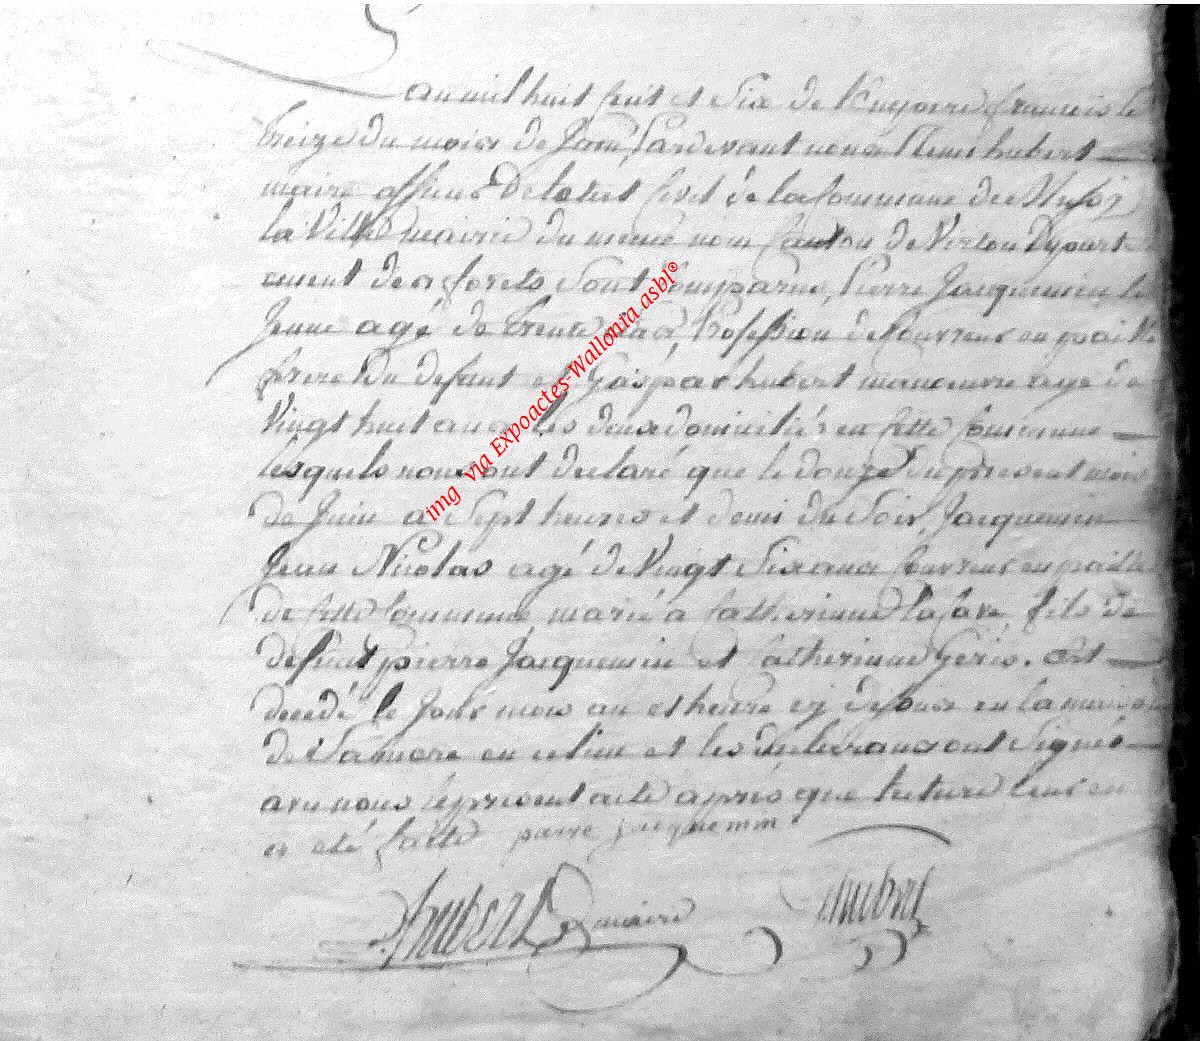 an mil huit cent et six de l'empire francois le
treize du mois de Juin, Pardevant nous Henri hubert
maire officier de letat civil de la commune de Mussy
la Ville mairie du meme nom Canton de Virton Departe
ment des forets sont comparus, Pierre Jacquemin le
Jeune agé de trente ans, Profession de Couvreur en paille
frere du defunt et Gaspar hubert manoeuvre agé de
Vingt huit ans les deux domiciliés en cette commune
lesquels nous ont declaré que le douze du present mois
de Juin a Sept heures et demi du soir, Jacquemin
Jean Nicolas agé de Vingt Six ans Couvreur en paille
de cette commune, marié à Catherinne la fils de
defunt pierre Jacquemin et Catherinne Geris. est
decedé le Jour mois an et heure cy depuis en la maison
de Sa mere en ce lieu et les declarans ont Signés
avec nous le present acte après que lecture leur en
a eté faitte pierre jacquemin
hubert maire hubert
img via Expoactes-Wallonia asbl®